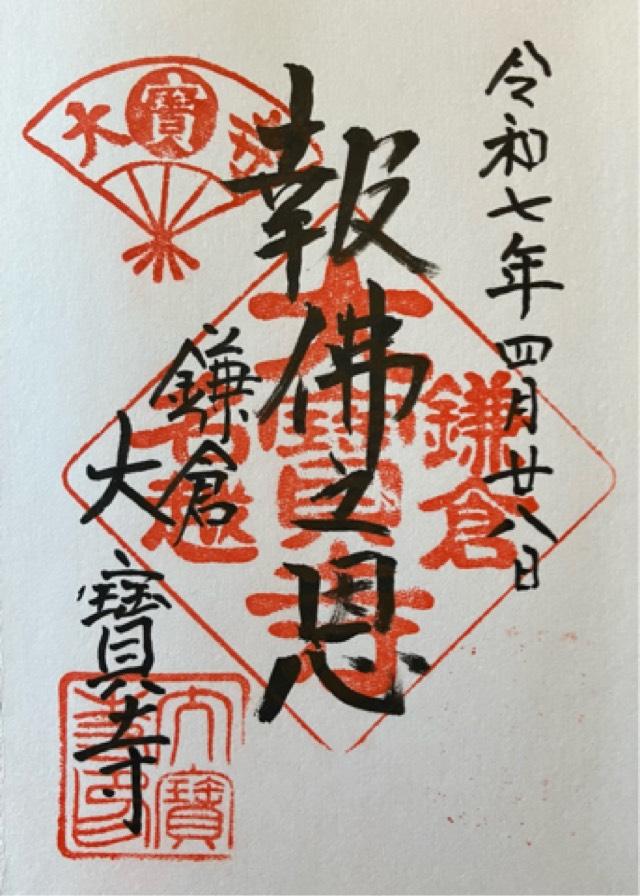 令和七年四月廿八日
報佛之恩
鎌倉
大寶寺
寶
鎌倉
大寶寺
名越
大寶
寺印